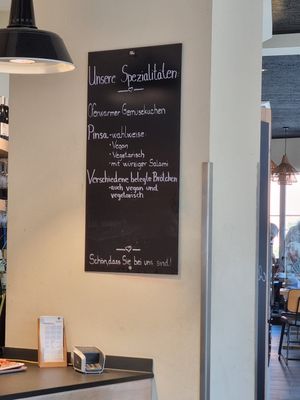 Unsere Spezialitäten
Ofenwarmer Gemüsekuchen
Pinsa - wahlweise:
• Vegan
• Vegetarisch
• mit würziger Salami
Verschiedene belegte Brötchen
- auch vegan und
vegetarisch
Schön, dass Sie bei uns sind!